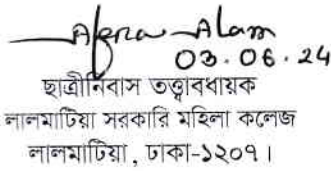 Afroza Alam
03.06.24
ছাত্রীনিবাস তত্ত্বাবধায়ক
লালমাটিয়া সরকারি মহিলা কলেজ
লালমাটিয়া, ঢাকা-১২০৭।